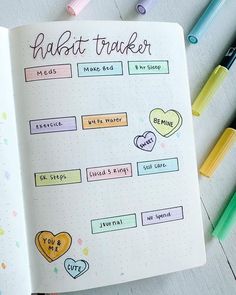 habit tracker
Meds
Make Bed
8 hr Sleep
Exercise
64 Fl Water
BE MINE
SWEET
5K Steps
Closed 3 Rings
Self Care
Journal
No Spend
YOU & ME
CUTE